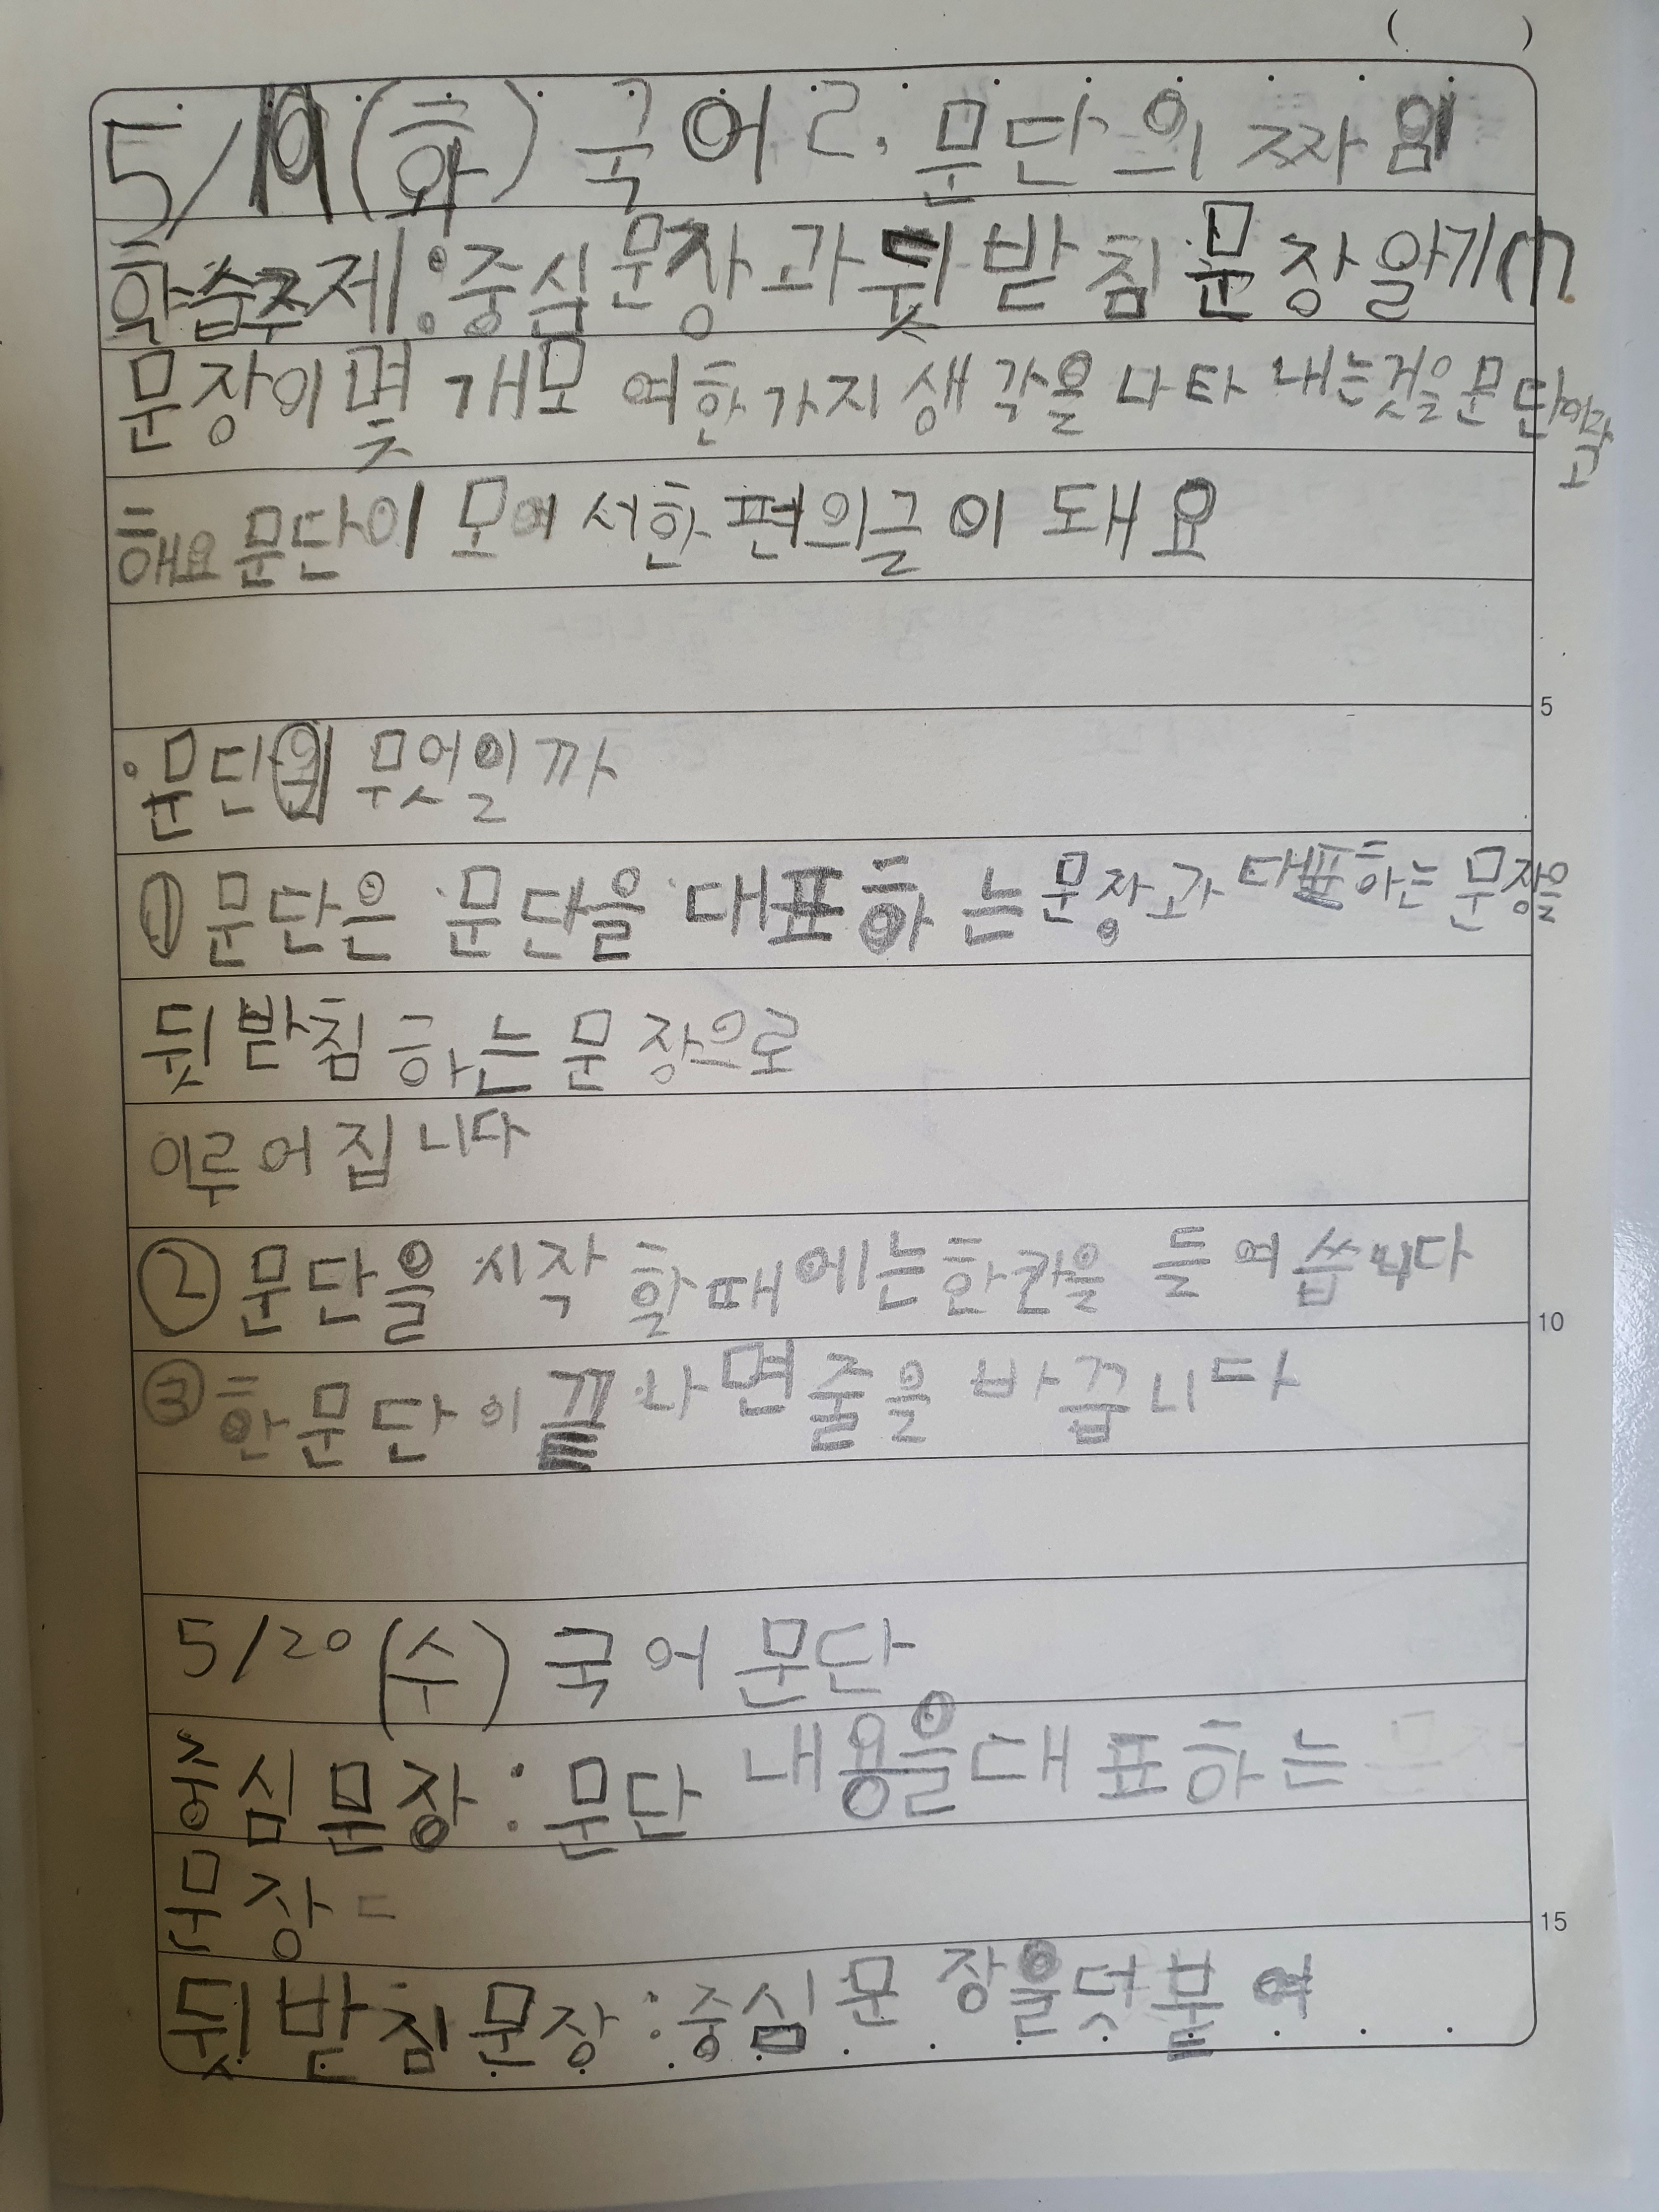 5/19(화) 국어 2. 문단의 짜임
학습주제:중심문장과 뒷받침 문장 알기
문장이 몇 개모 여한가지 생각을 나타 내는것을 문단이라고
해요 문단이 모여 서한 편의글 이 돼요
·문단의 무엇일까
① 문단은 문단을 대표하는 문장과 대표하는 문장을
뒷받침 하는 문장으로
이루어집니다
② 문단을 시작 할때에는한칸을 들여씁니다
③ 한문단이 끝나면줄을 바꿉니다
5/20 (수) 국어 문단
중심문장: 문단 내용을대표하는
문장
뒷받침문장:중심문장을덧붙여
5
10
15